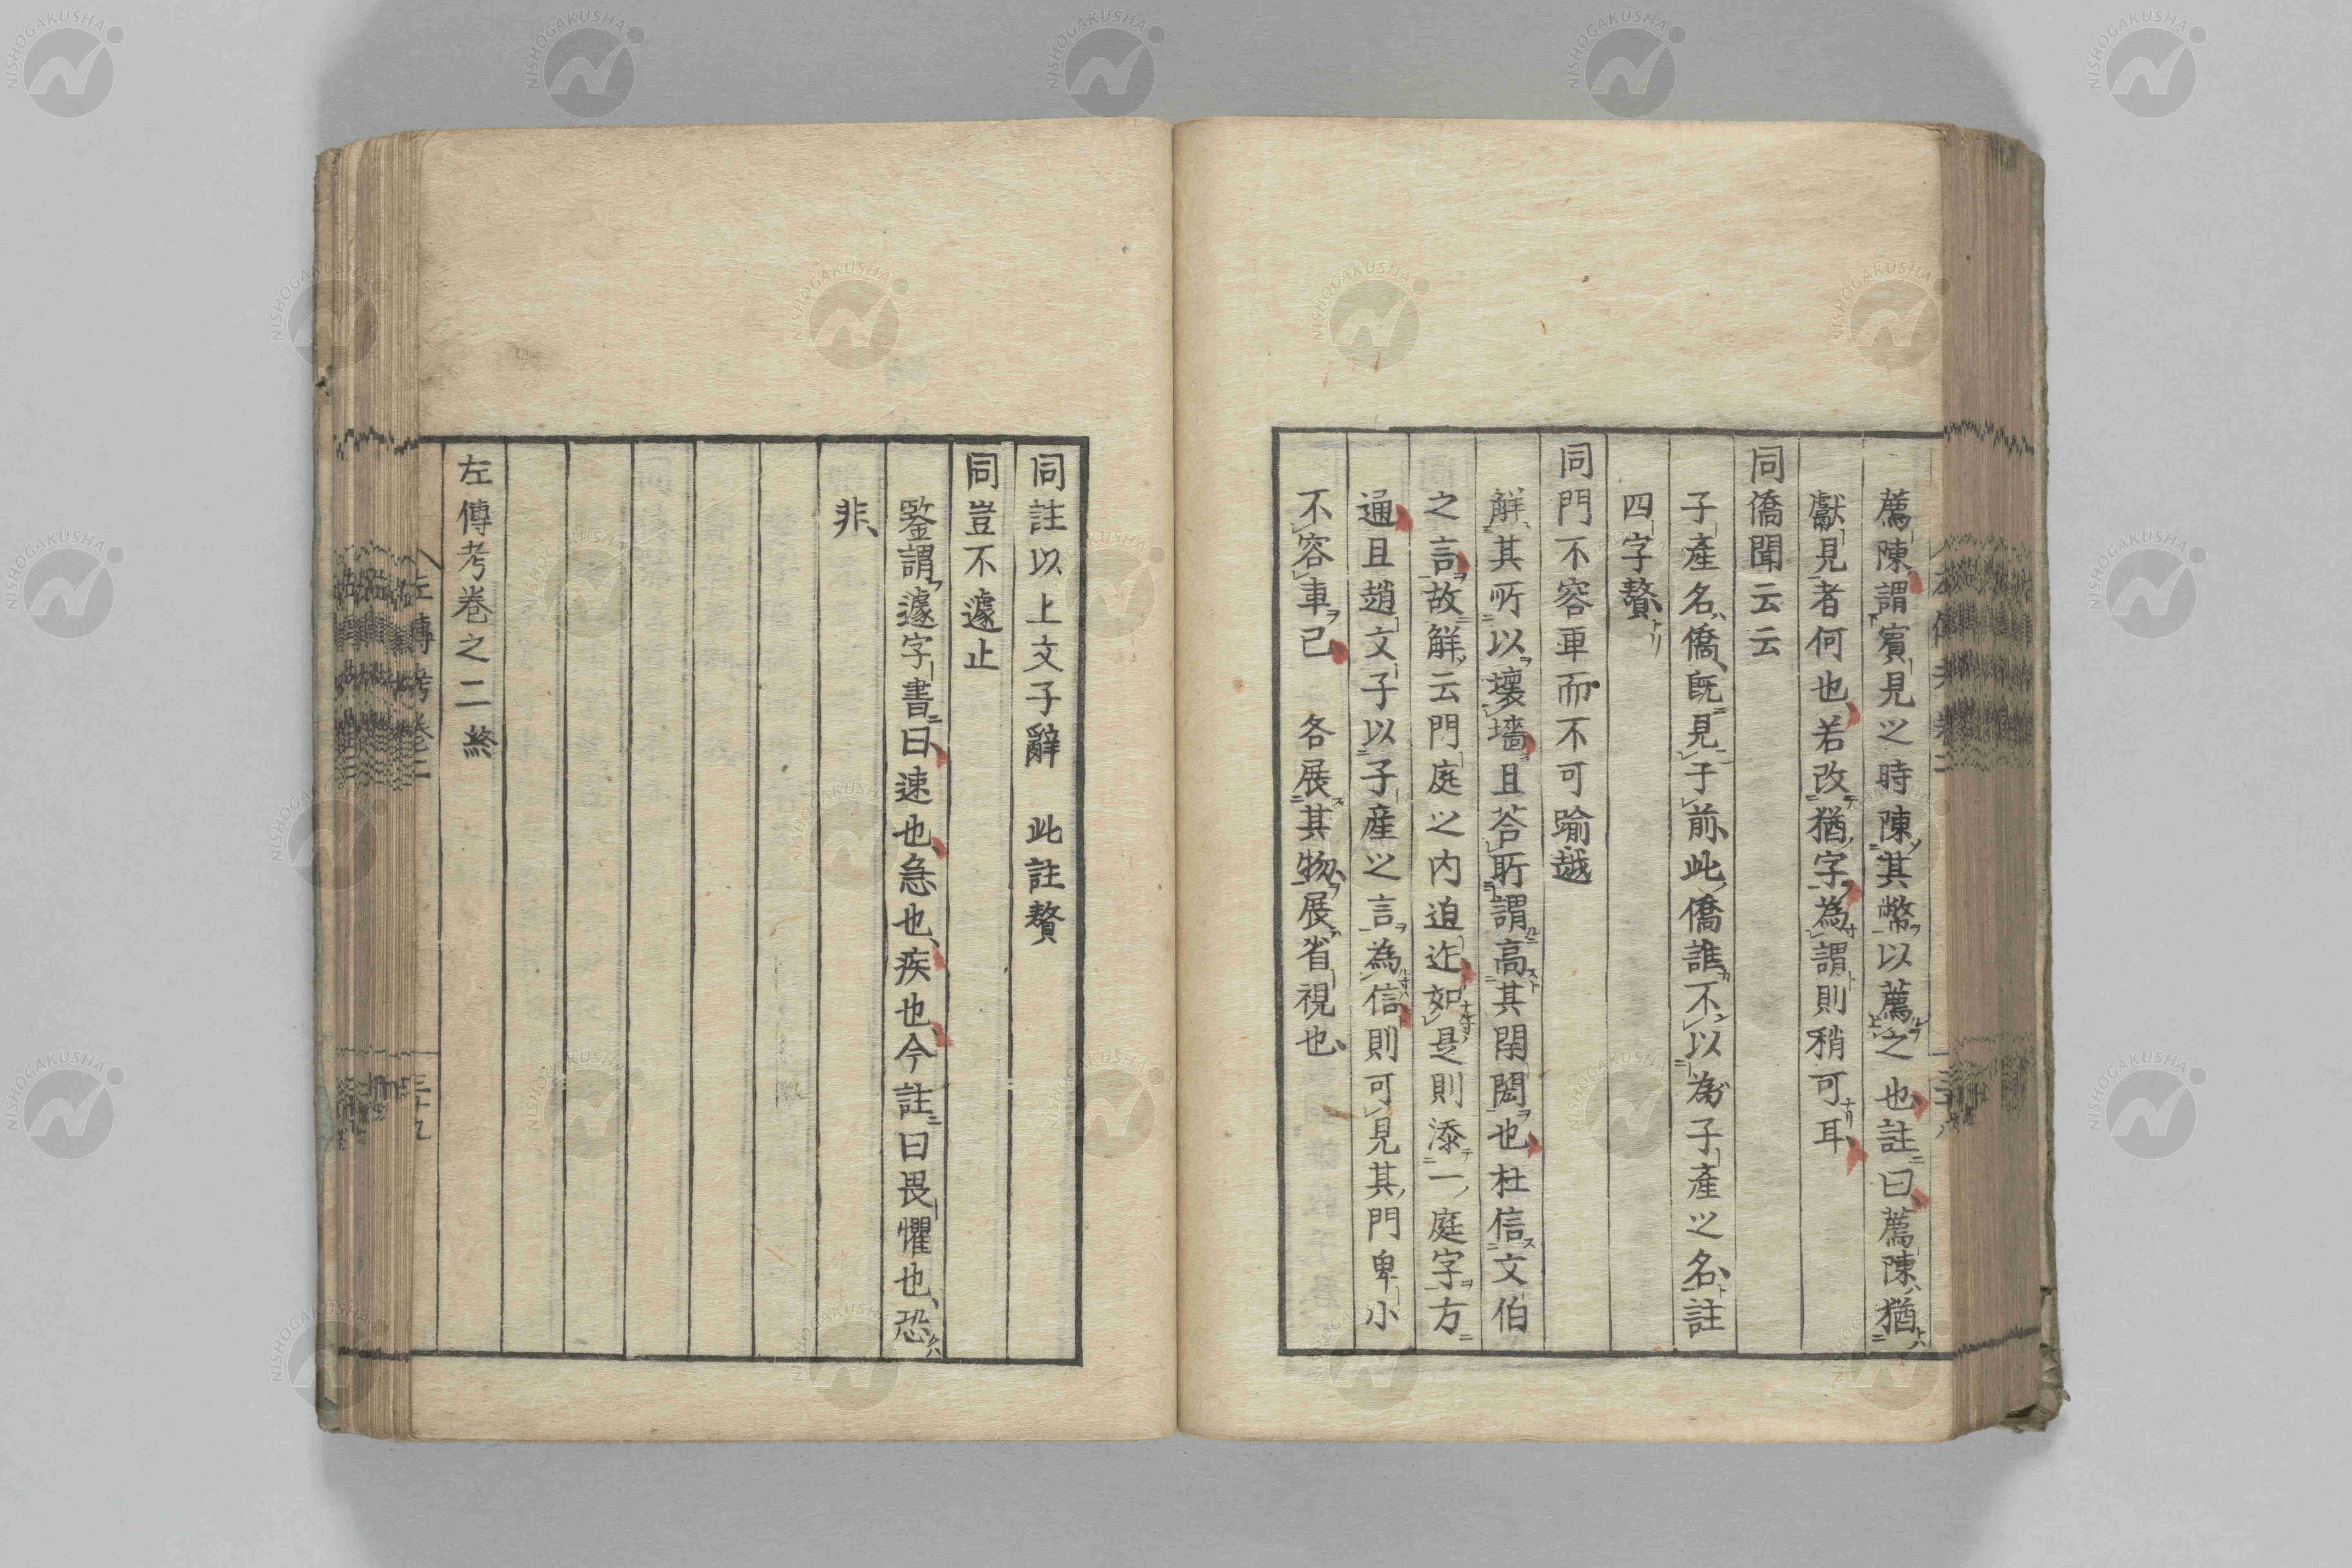 薦陳謂賓見之時陳其幣以薦之也註曰薦陳猶
獻見者何也若改猶字為謂則稍可耳
同僑聞云云
子產名僑既見于前此僑誰不以為子產之名註
四字贅
同門不容車而不可踰越
解其所以壞墻且荅所謂高其閈閎也杜信文伯
之言故解云門庭之内迫迮如是則添一庭字方
通且趙文子以子產之言為信則可見其門卑小
不容車已　各展其物展省視也
同註以上文子辭　此註贅
同豈不遽止
鑒謂遽字書曰速也急也疾也今註曰畏懼也恐
非
左傳考卷之二終
左傳考卷二
三十九
NISHOGAKUSHA